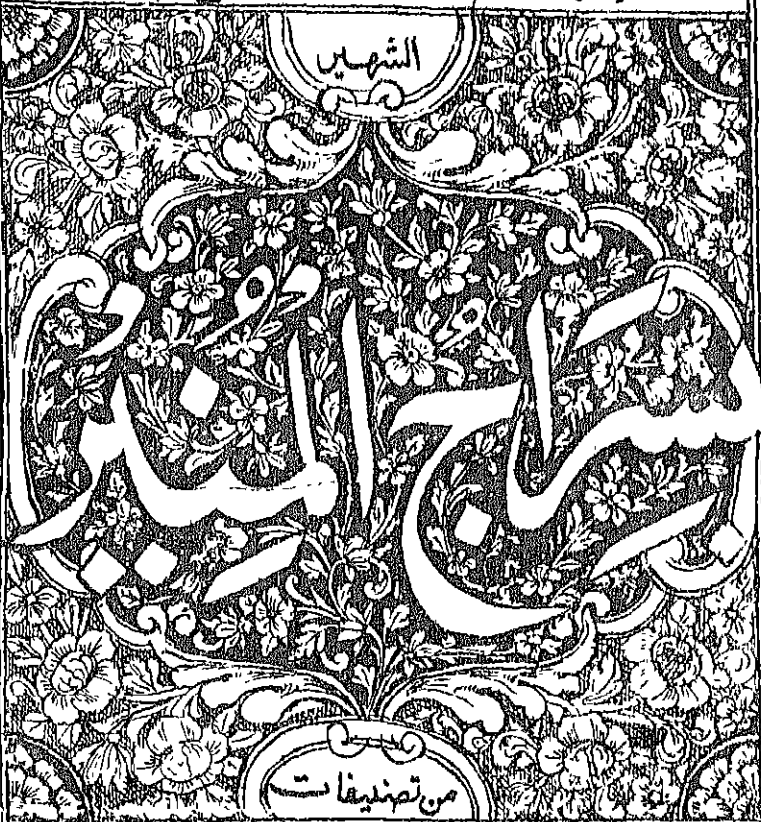 الشهير
بسِرَاجُ المُنِيرُ
من تصنيفات